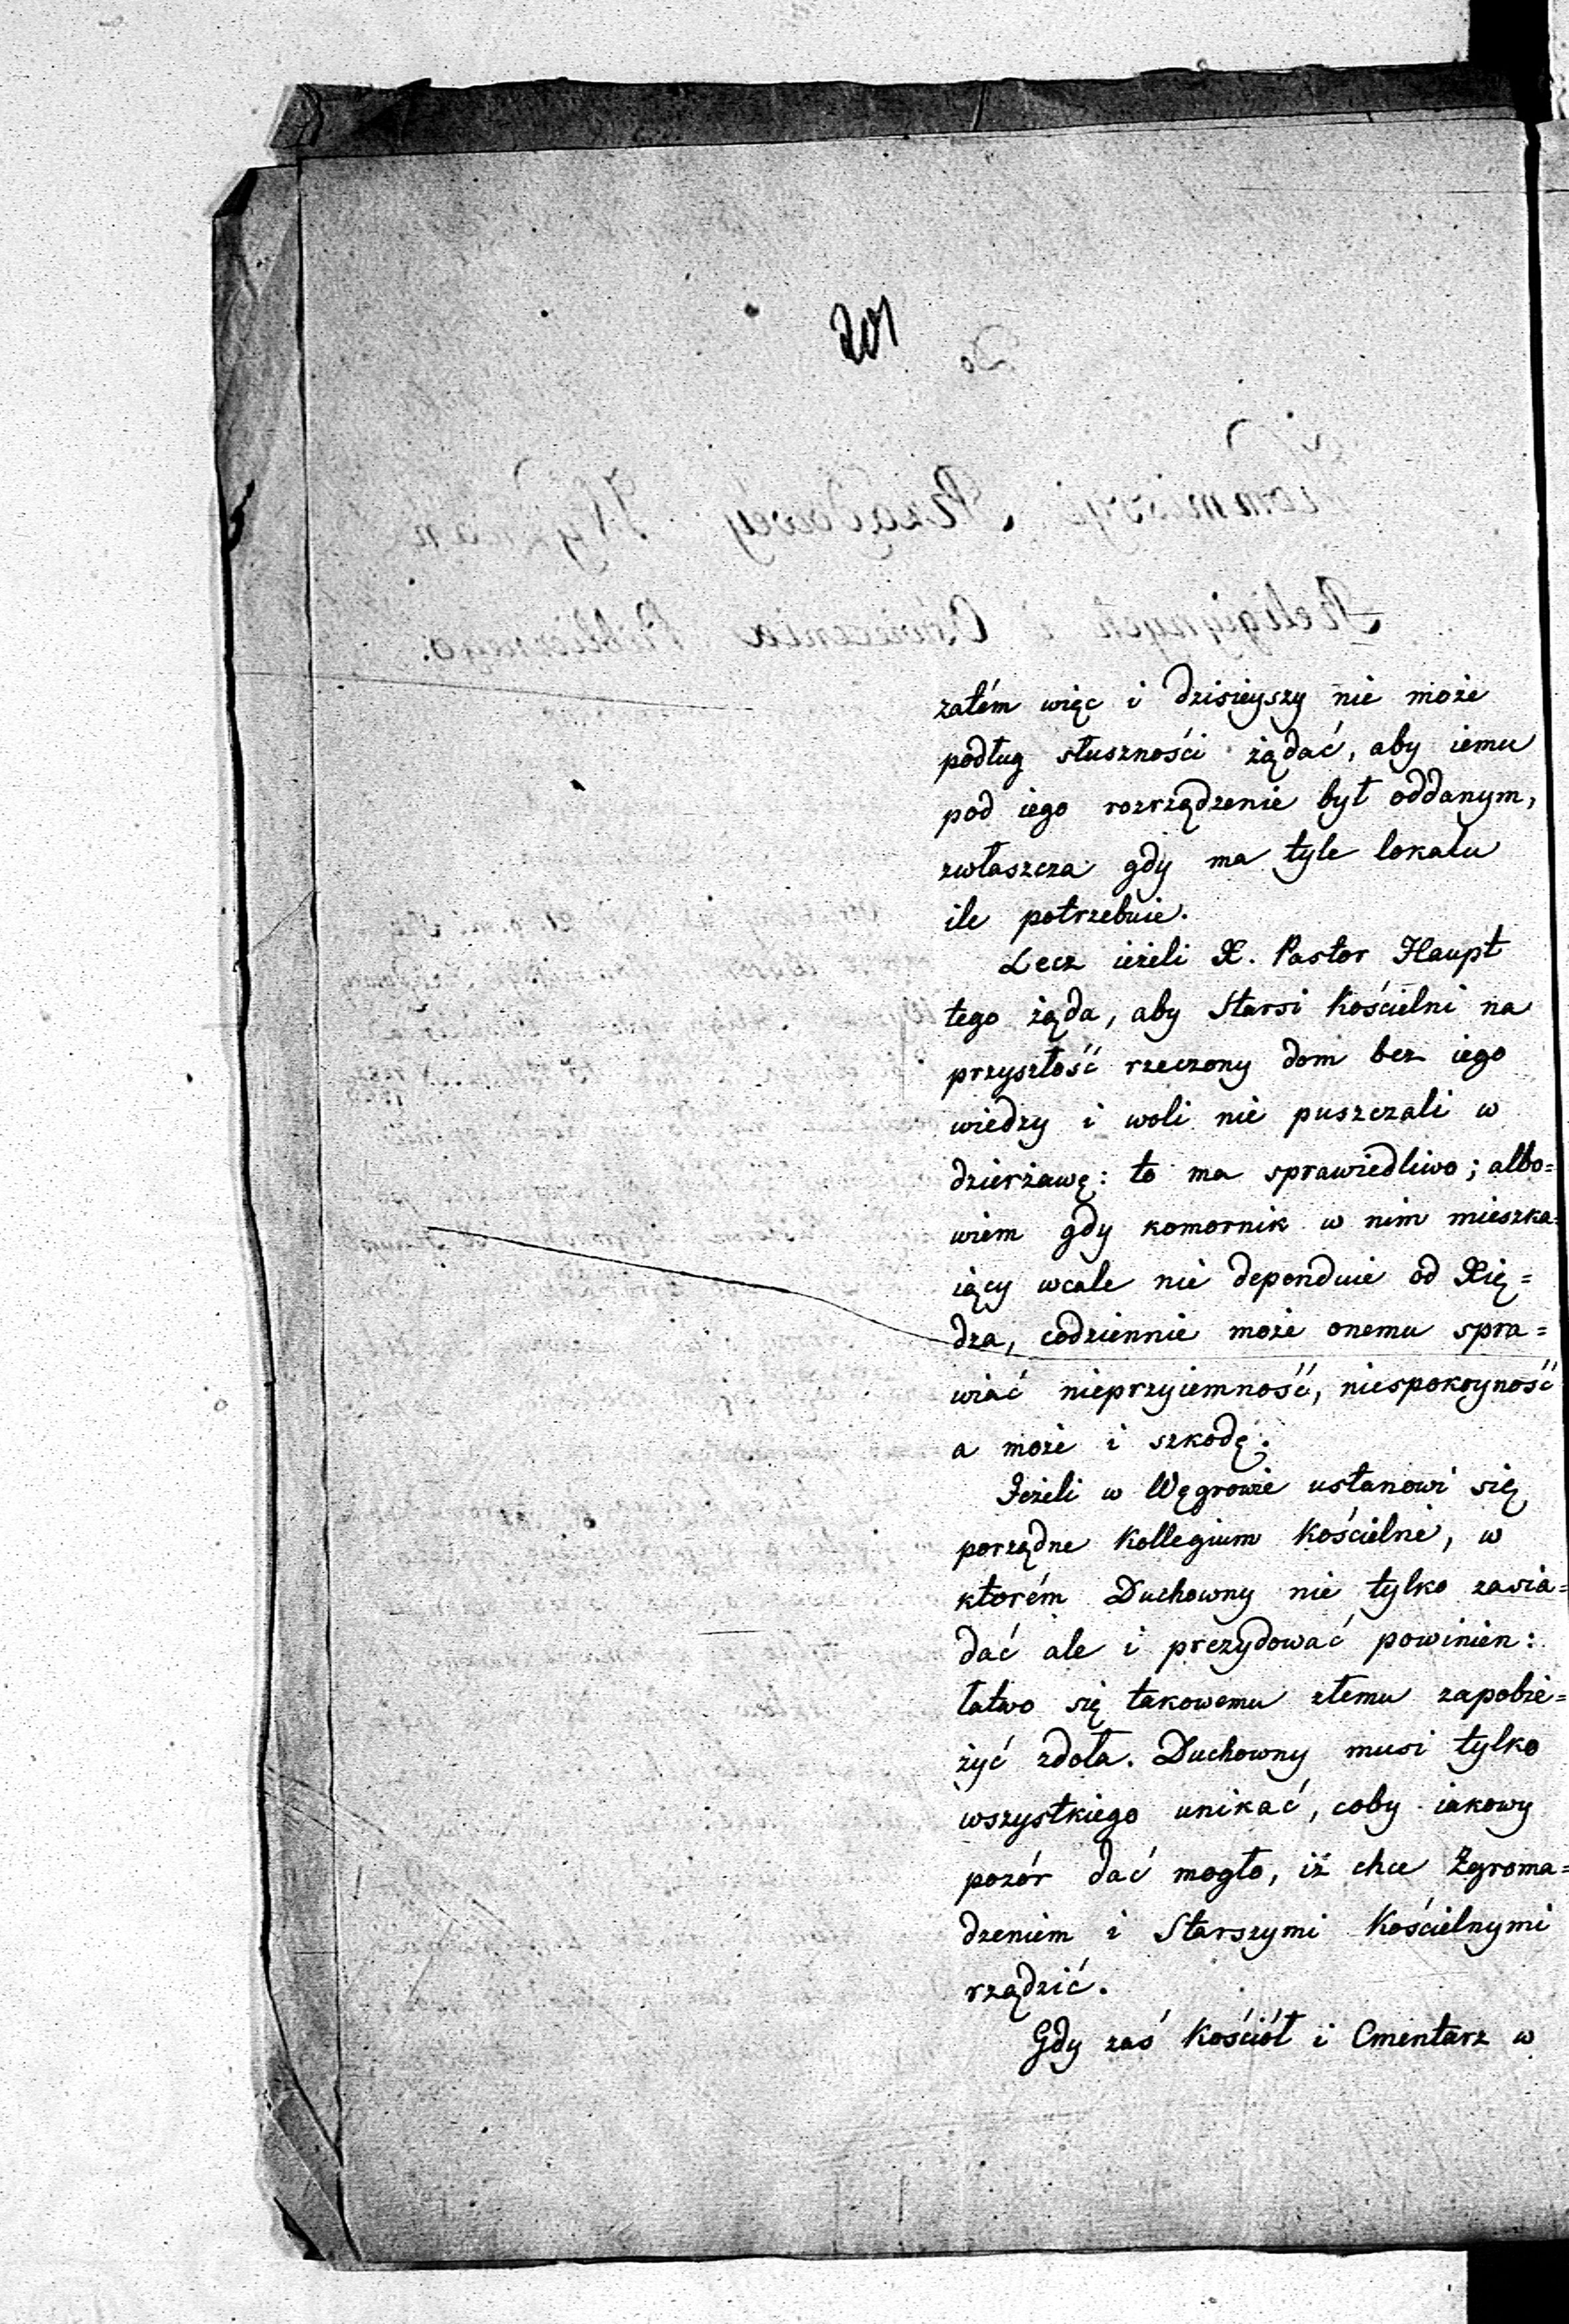 201
zatém więc i dzisieyszy nie może
podług słuszności żądać, aby iemu
pod iego rozrządzenie był oddanym,
zwłaszcza gdy ma tyle lokalu
ile potrzebuie.
Lecz ieżeli X. Pastor Haupt
tego żąda, aby Starsi Kościelni na
przyszłość rzeczony dom bez iego
wiedzy i woli nie puszczali w
dzierżawę: to ma sprawiedliwo; albo=
wiem gdy komornik w nim mieszka=
iący wcale nie dependuie od Xię=
dza, codziennie może onemu spra=
wiać nieprzyiemność, niespokoyność
a może i szkodę.
Jeżeli w Węgrowie ustanowi się
porządne Kollegium Kościelne, w
ktorém Duchowny nie tylko zasia=
dać ale i prezydować powinien:
łatwo się takowemu złemu zapobie=
żyć zdoła. Duchowny musi tylko
wszystkiego unikać, coby iakowy
pozór dać mogło, iż chce Zgroma=
dzeniem i Starszymi Kościelnymi
rządzić.
Gdy zaś Kościół i Cmentarz w